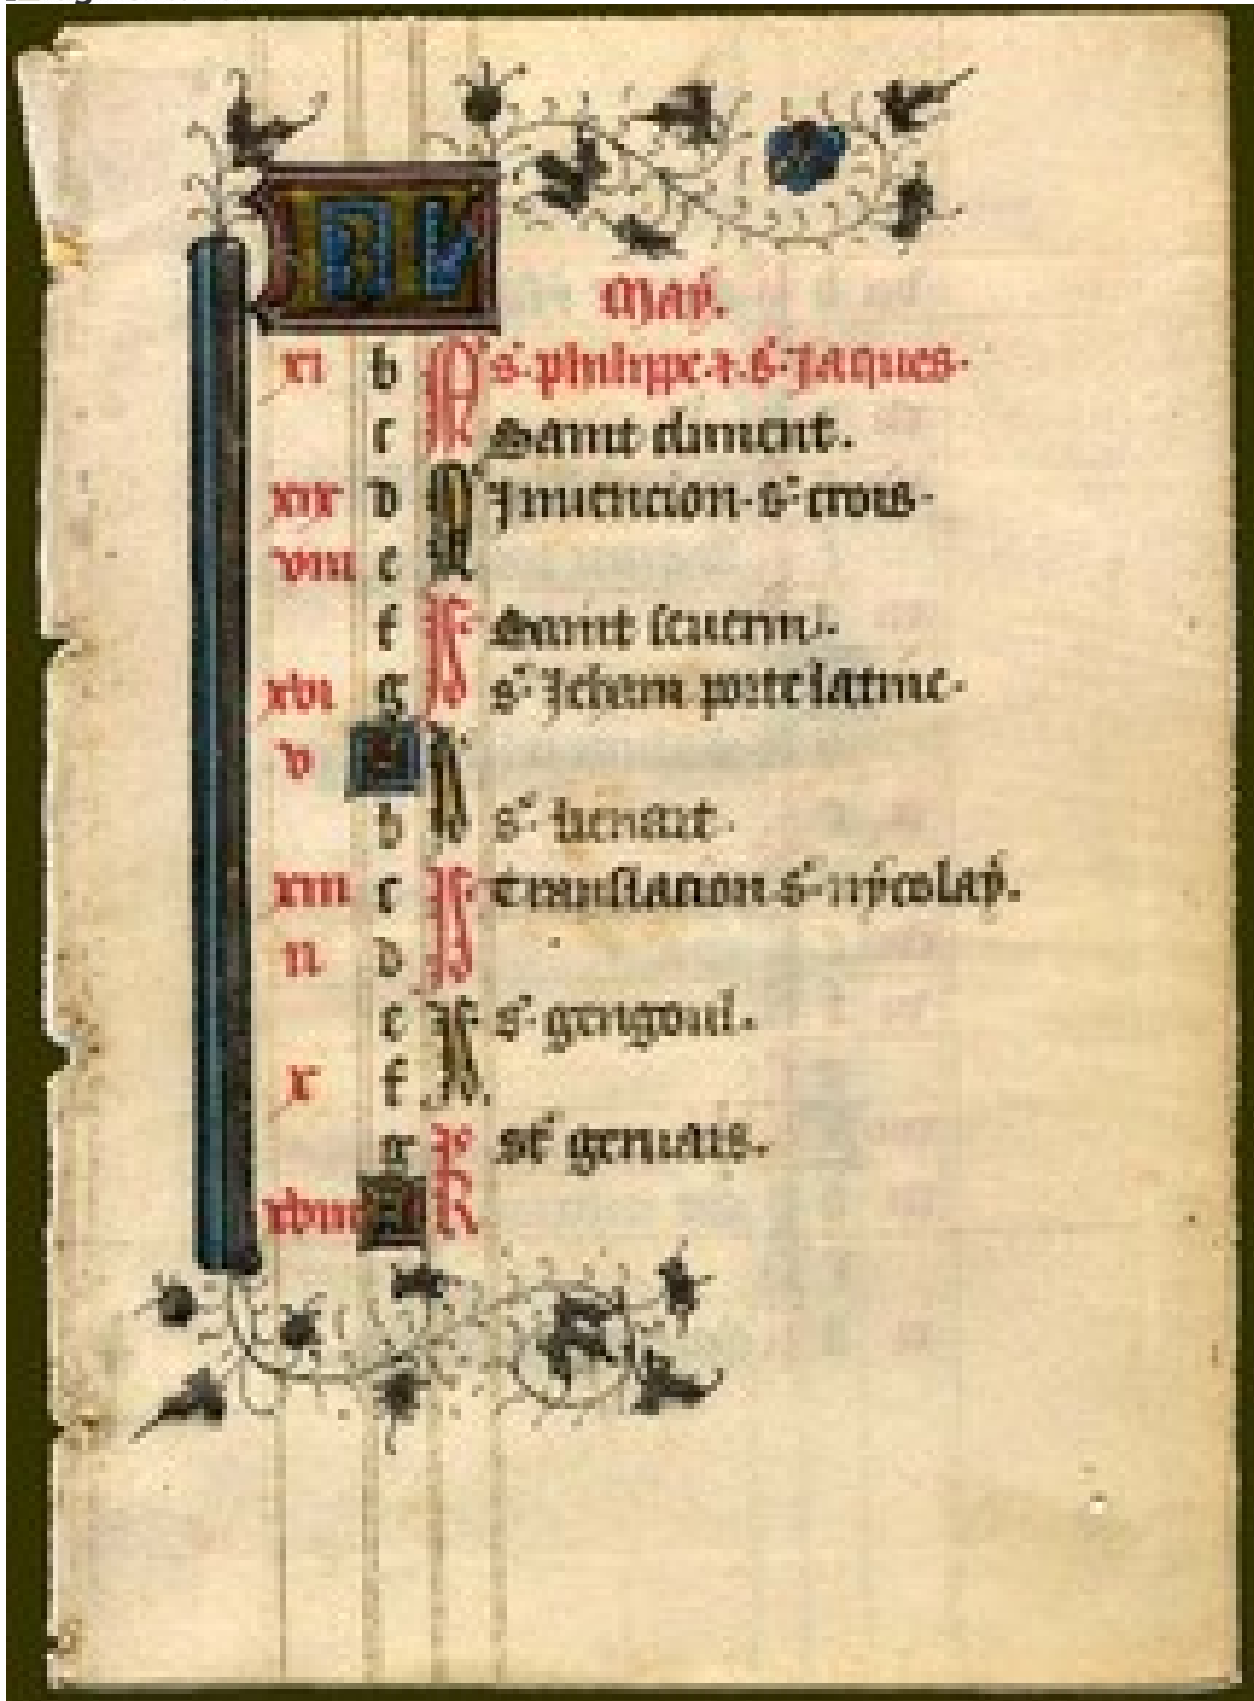 KL
May.
xi b s. philippe. & s. Jaques.
c Saint climent.
xix d Jnuencion. s. crois.
viii e
f Saint seuerin.
xvi g s. Jehan porte latine.
v A
b s.
xiii c Translacion s. nycolay.
ii d
e s. gengoul.
x f
g st geruais.
xviii A